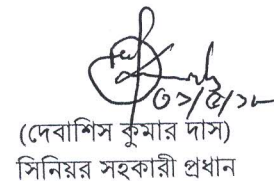 ৩১/৫/১৮
(দেবাশিস কুমার দাস)
সিনিয়র সহকারী প্রধান